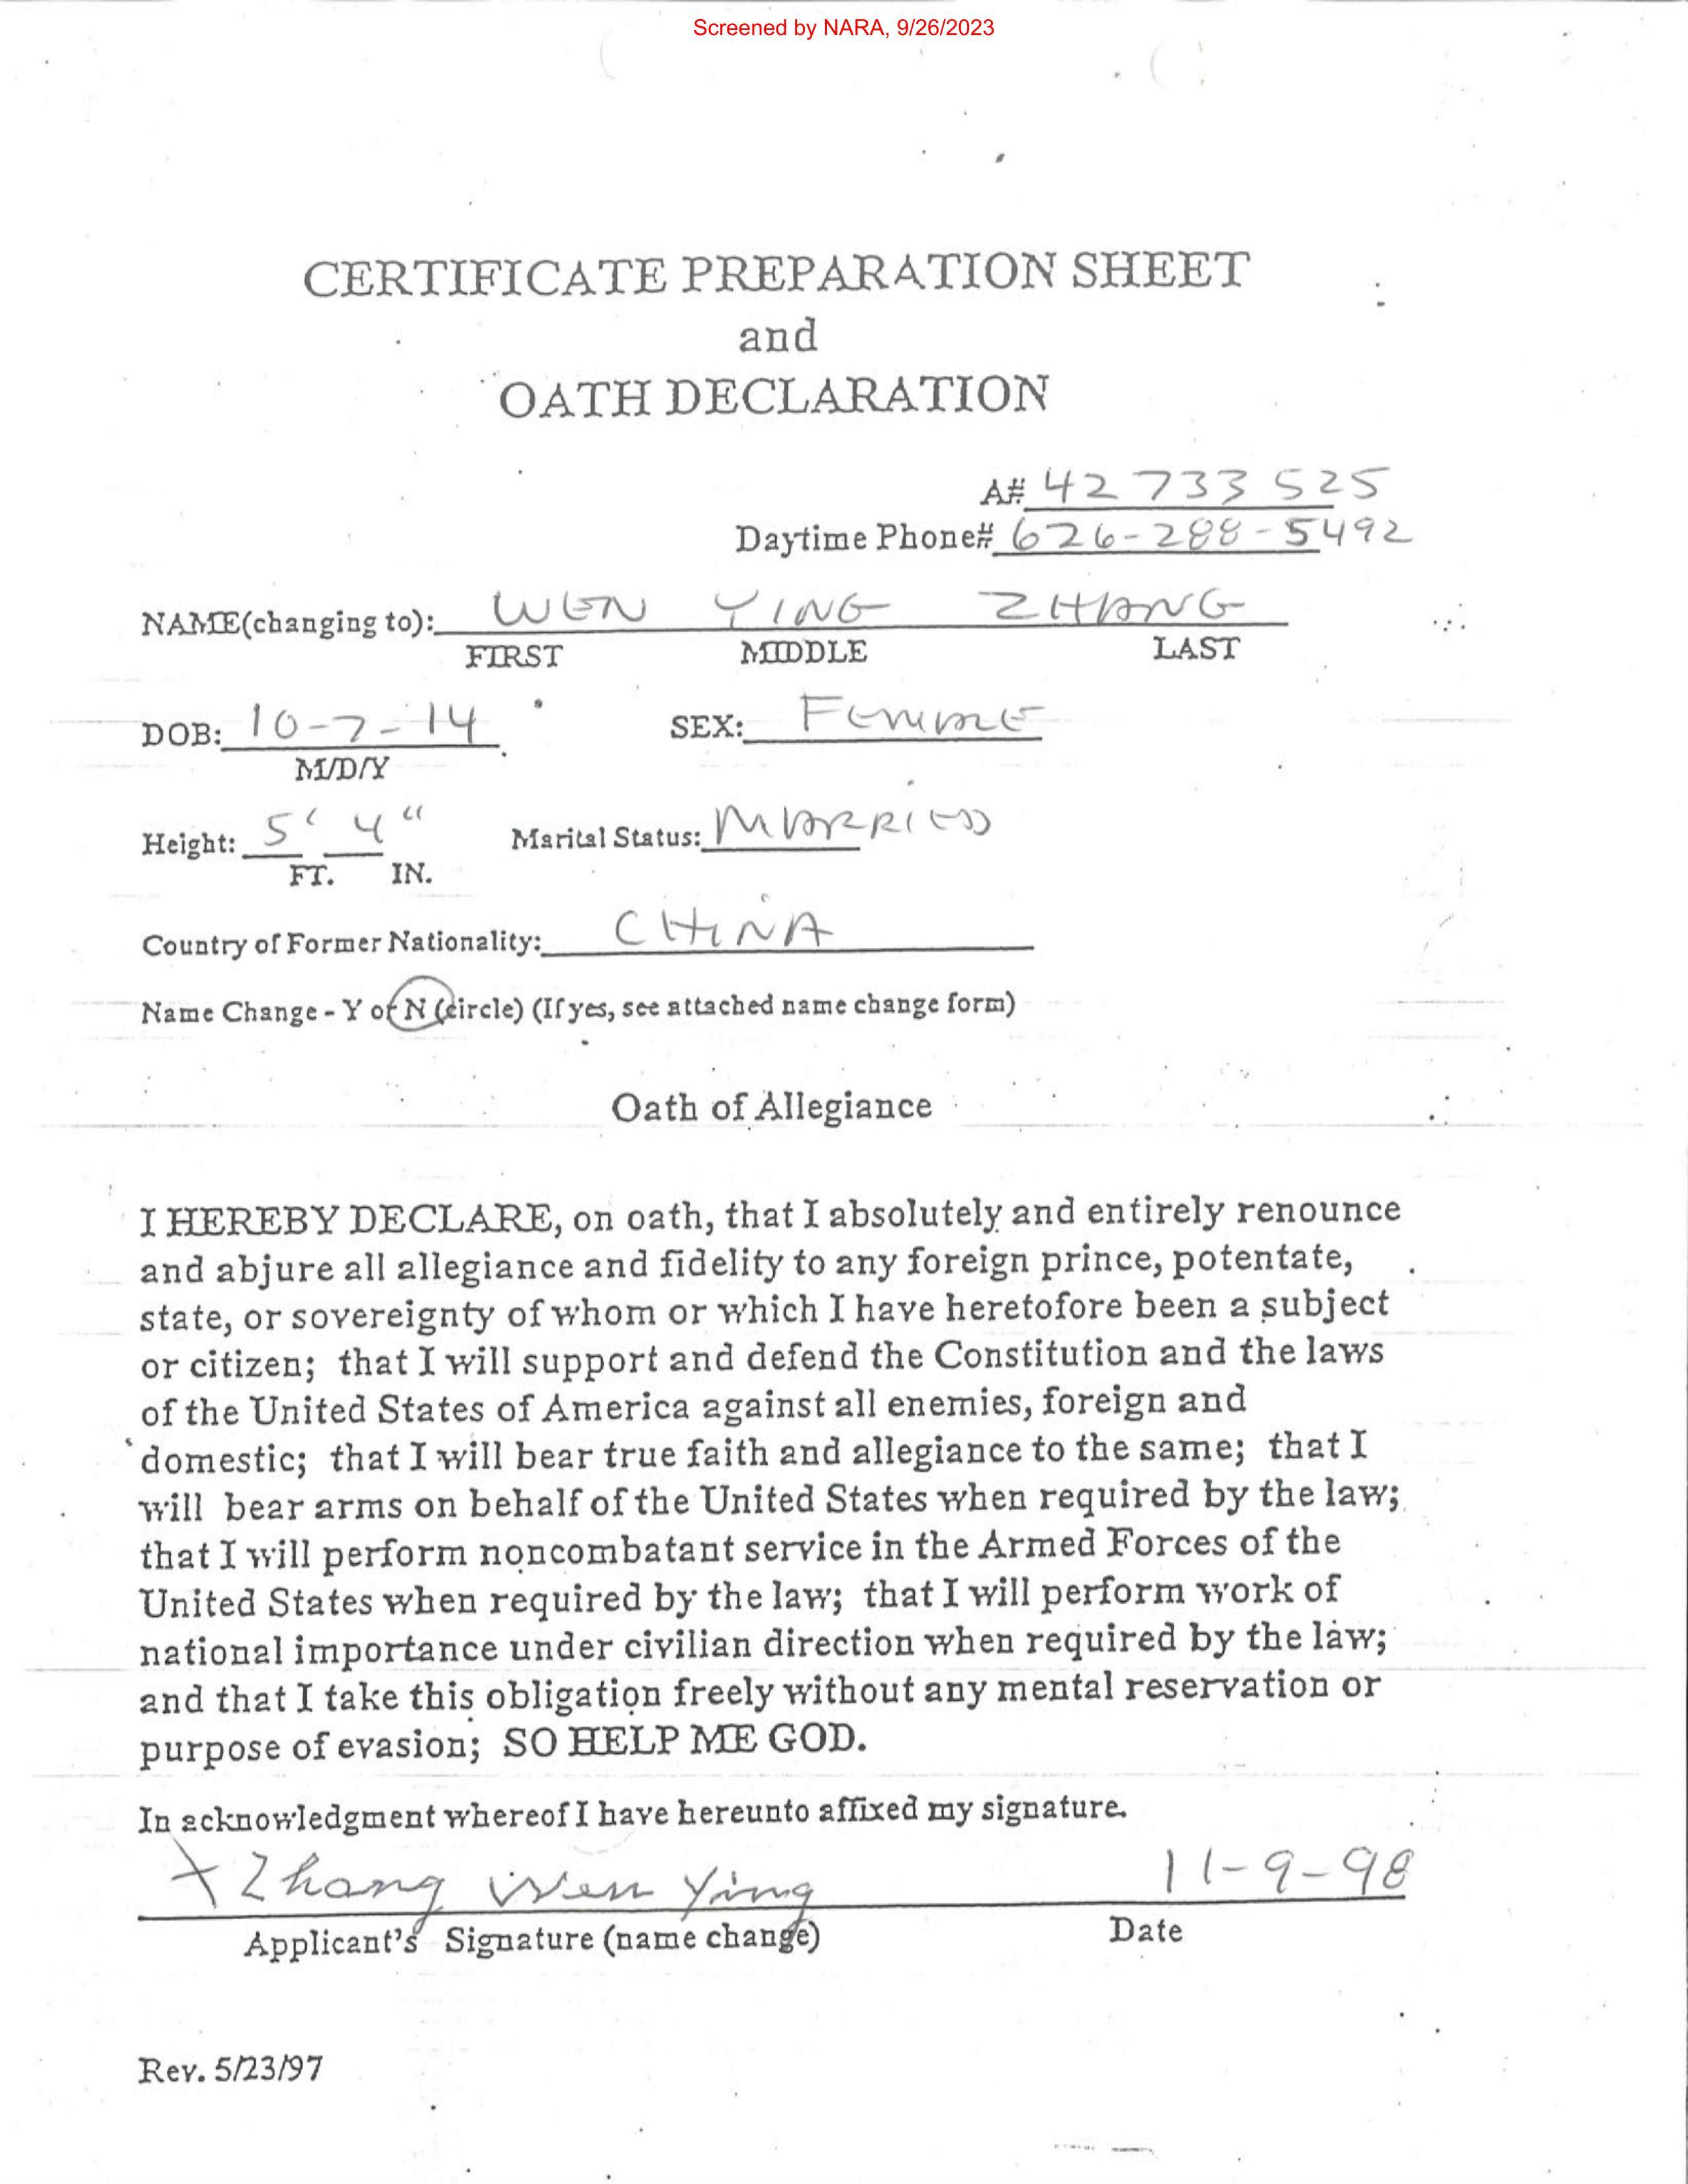 Screened by NARA, 9/26/2023
CERTIFICATE PREPARATION SHEET
and
OATH DECLARATION
A# 42 733 525
Daytime Phone# 626-288-5492
NAME(changing to): WEN YING ZHANG
FIRST MIDDLE LAST
DOB: 10-7-14 SEX: FEMALE
M/D/Y
Height: 5' 4" Marital Status: MARRIED
FT. IN.
Country of Former Nationality: CHINA
Name Change - Y or N (circle) (If yes, see attached name change form)
Oath of Allegiance
I HEREBY DECLARE, on oath, that I absolutely and entirely renounce
and abjure all allegiance and fidelity to any foreign prince, potentate,
state, or sovereignty of whom or which I have heretofore been a subject
or citizen; that I will support and defend the Constitution and the laws
of the United States of America against all enemies, foreign and
domestic; that I will bear true faith and allegiance to the same; that I
will bear arms on behalf of the United States when required by the law;
that I will perform noncombatant service in the Armed Forces of the
United States when required by the law; that I will perform work of
national importance under civilian direction when required by the law;
and that I take this obligation freely without any mental reservation or
purpose of evasion; SO HELP ME GOD.
In acknowledgment whereof I have hereunto affixed my signature.
X Zhang Wen Ying 11-9-98
Applicant's Signature (name change) Date
Rev. 5/23/97